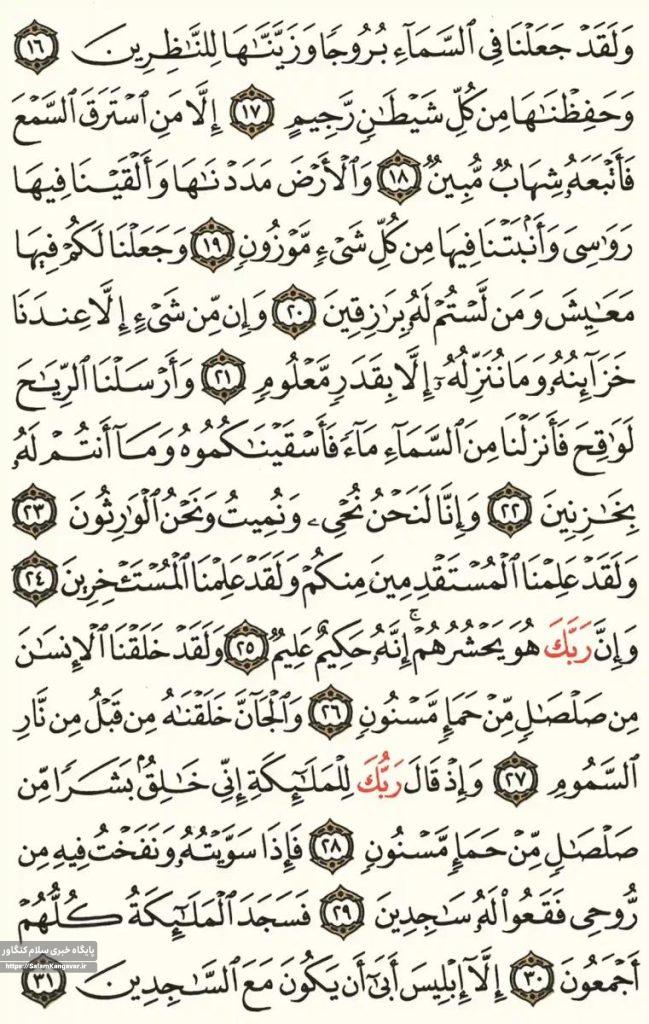 وَلَقَدْ جَعَلْنَا فِى ٱلسَّمَآءِ بُرُوجًا وَزَيَّنَّٰهَا لِلنَّٰظِرِينَ ١٦
وَحَفِظْنَٰهَا مِن كُلِّ شَيْطَٰنٍ رَّجِيمٍ ١٧ إِلَّا مَنِ ٱسْتَرَقَ ٱلسَّمْعَ
فَأَتْبَعَهُۥ شِهَابٌ مُّبِينٌ ١٨ وَٱلْأَرْضَ مَدَدْنَٰهَا وَأَلْقَيْنَا فِيهَا
رَوَٰسِىَ وَأَنۢبَتْنَا فِيهَا مِن كُلِّ شَىْءٍ مَّوْزُونٍ ١٩ وَجَعَلْنَا لَكُمْ فِيهَا
مَعَٰيِشَ وَمَن لَّسْتُمْ لَهُۥ بِرَٰزِقِينَ ٢٠ وَإِن مِّن شَىْءٍ إِلَّا عِندَنَا
خَزَآئِنُهُۥ وَمَا نُنَزِّلُهُۥٓ إِلَّا بِقَدَرٍ مَّعْلُومٍ ٢١ وَأَرْسَلْنَا ٱلرِّيَٰحَ
لَوَٰقِحَ فَأَنزَلْنَا مِنَ ٱلسَّمَآءِ مَآءً فَأَسْقَيْنَٰكُمُوهُ وَمَآ أَنتُمْ لَهُۥ
بِخَٰزِنِينَ ٢٢ وَإِنَّا لَنَحْنُ نُحْىِۦ وَنُمِيتُ وَنَحْنُ ٱلْوَٰرِثُونَ ٢٣
وَلَقَدْ عَلِمْنَا ٱلْمُسْتَقْدِمِينَ مِنكُمْ وَلَقَدْ عَلِمْنَا ٱلْمُسْتَـْٔخِرِينَ ٢٤
وَإِنَّ رَبَّكَ هُوَ يَحْشُرُهُمْ ۚ إِنَّهُۥ حَكِيمٌ عَلِيمٌ ٢٥ وَلَقَدْ خَلَقْنَا ٱلْإِنسَٰنَ
مِن صَلْصَٰلٍ مِّنْ حَمَإٍ مَّسْنُونٍ ٢٦ وَٱلْجَآنَّ خَلَقْنَٰهُ مِن قَبْلُ مِن نَّارِ
ٱلسَّمُومِ ٢٧ وَإِذْ قَالَ رَبُّكَ لِلْمَلَٰٓئِكَةِ إِنِّى خَٰلِقٌۢ بَشَرًا مِّن
صَلْصَٰلٍ مِّنْ حَمَإٍ مَّسْنُونٍ ٢٨ فَإِذَا سَوَّيْتُهُۥ وَنَفَخْتُ فِيهِ مِن
رُّوحِى فَقَعُوا۟ لَهُۥ سَٰجِدِينَ ٢٩ فَسَجَدَ ٱلْمَلَٰٓئِكَةُ كُلُّهُمْ
أَجْمَعُونَ ٣٠ إِلَّآ إِبْلِيسَ أَبَىٰٓ أَن يَكُونَ مَعَ ٱلسَّٰجِدِينَ ٣١
پایگاه خبری سلام کنگاور
https://SalamKangavar.ir